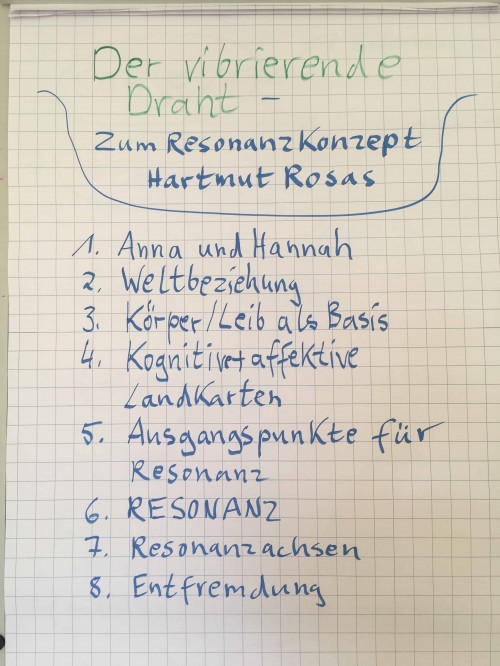 Der vibrierende
Draht –
Zum Resonanzkonzept
Hartmut Rosas
1. Anna und Hannah
2. Weltbeziehung
3. Körper/Leib als Basis
4. Kognitive + affektive
Landkarten
5. Ausgangspunkte für
Resonanz
6. RESONANZ
7. Resonanzachsen
8. Entfremdung